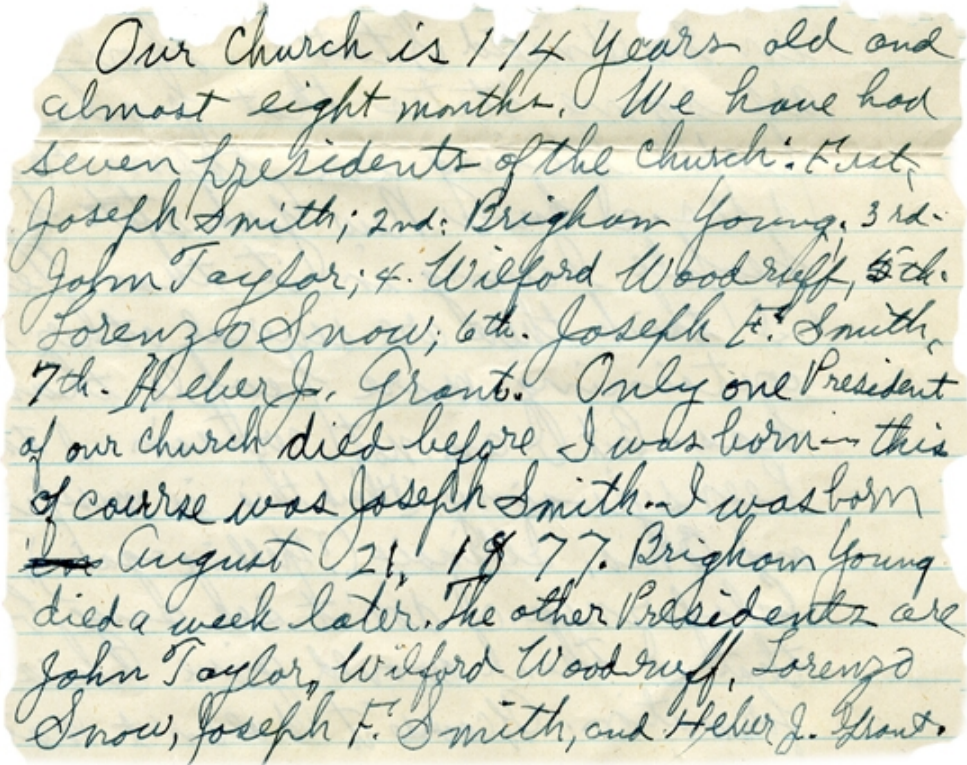 Our Church is 114 years old and
almost eight months. We have had
seven presidents of the church: First,
Joseph Smith; 2nd: Brigham Young; 3rd-
John Taylor; 4. Wilford Woodruff, 5th.
Lorenzo Snow; 6th. Joseph F. Smith,
7th. Heber J. Grant. Only one President
of our church died before I was born — this
of course was Joseph Smith. I was born
August 21, 1877. Brigham Young
died a week later. The other Presidents are
John Taylor, Wilford Woodruff, Lorenzo
Snow, Joseph F. Smith, and Heber J. Grant.